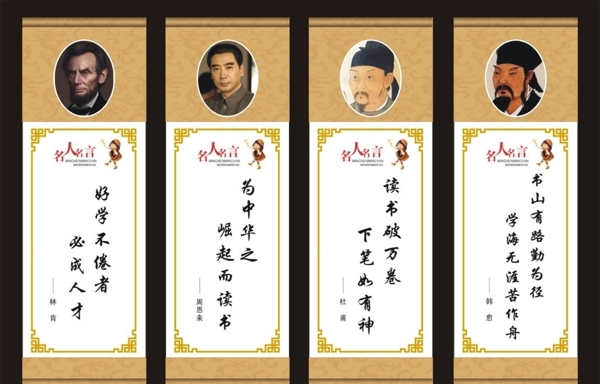 名人名言
MINGRENMINGYAN
好学不倦者
必成人才
——林肯
名人名言
MINGRENMINGYAN
为中华之
崛起而读书
——周恩来
名人名言
MINGRENMINGYAN
读书破万卷
下笔如有神
——杜甫
名人名言
MINGRENMINGYAN
书山有路勤为径
学海无涯苦作舟
——韩愈